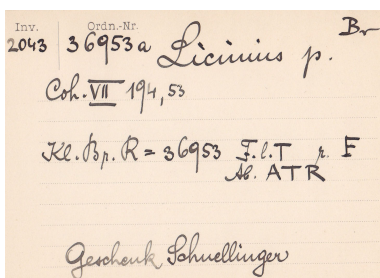 Inv. Ordn.-Nr. Br
2043 36953a Licinius p.
Coh. VII 194,53
Kl. Br. R = 36953 F.l.T r. F
Ab. ATR
Geschenk Schnellinger